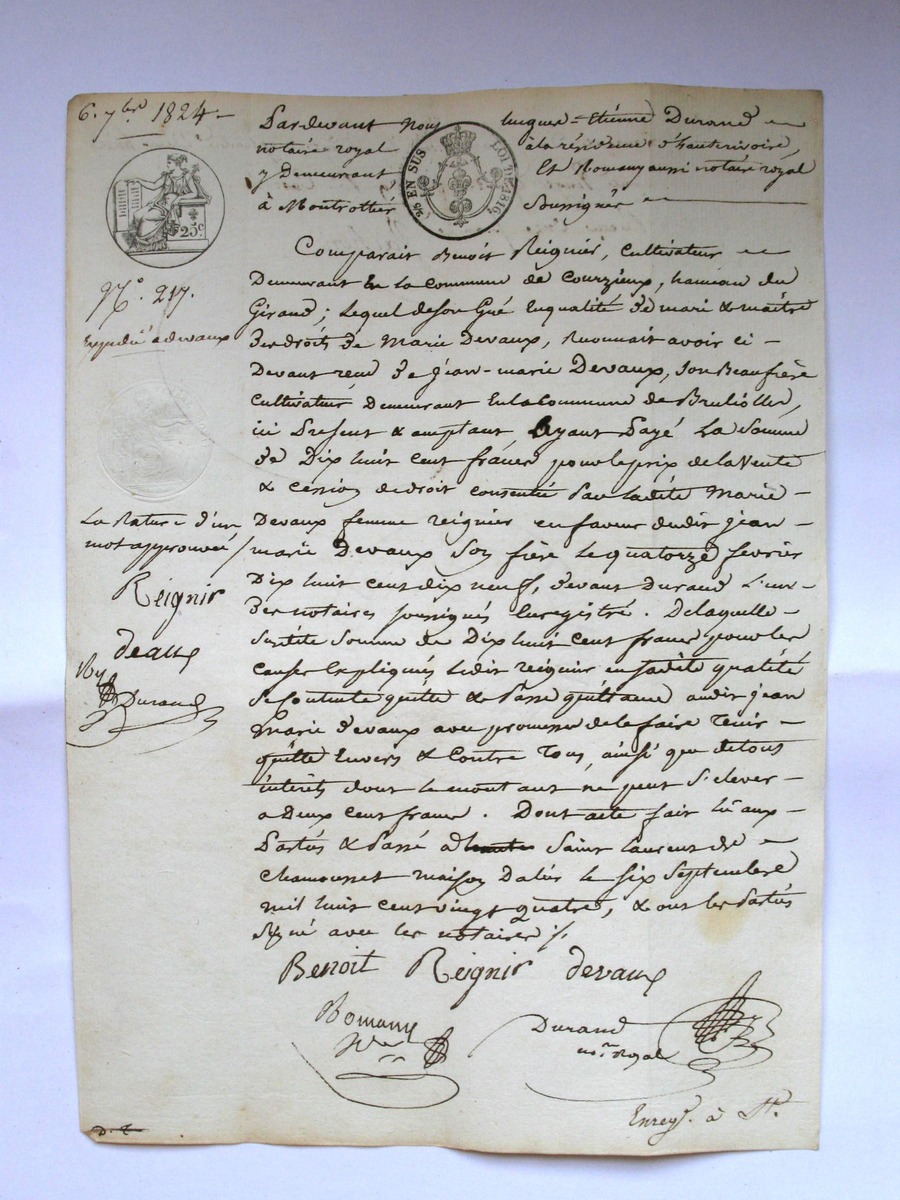 6. 7bre 1824
Pardevant Nous hugues-Etienne Durand
notaire royal à la résidence d'hauterivoire,
y Demeurant, Et Romany aussi notaire royal
à Montrottier Soussignés
25 EN SUS LOI DE 1816
25c
Comparait Benoit Reignier, cultivateur
Demeurant En la commune de Courzieux, hameau du
Giraud; Lequel de son Gré En qualité de mari & maître
des droits de Marie Devaux, reconnait avoir ci-
Devant reçu de Jean-marie Devaux, Son Beaufrère
Cultivateur Demeurant En la Commune de Brulliolles,
ici Present & acceptant Ayant Payé La Somme
de Dix huit cent francs pour le prix de la Vente
& cession de droit consentie Par Ladite Marie
Devaux femme reignier en faveur dudit jean-
marie Devaux Son frère Le quatorze fevrier
Dix huit cent dix neuf, devant Durand L'un
des notaires soussignés Enregistré. De laquelle
Susdite Somme de Dix huit cent francs pour les
causes Expliquées Ledit reignier en sadite qualité
Se Contente quitte & Passe quittance audit jean
Marie devaux avec promesse de le faire tenir
quitte Envers & Contre Tous, ainsi que de tous
intérêts dont le montant ne peut S'elever
a Deux cent francs. Dont acte fait Lu aux
Parties & Passé à Saint Laurent de
Chamousset maison Dalin le Six Septembre
mil huit cent vingt quatre, & ont les Parties
Signé avec les notaires ./.
Benoit Reignir devaux
Romany
Nre
Durand
nre Royal
Enregt. à St.
No. 217.
Expedié a devaux
La Rature d'un
mot approuvée
Reignir
deaux
Ry
Durand